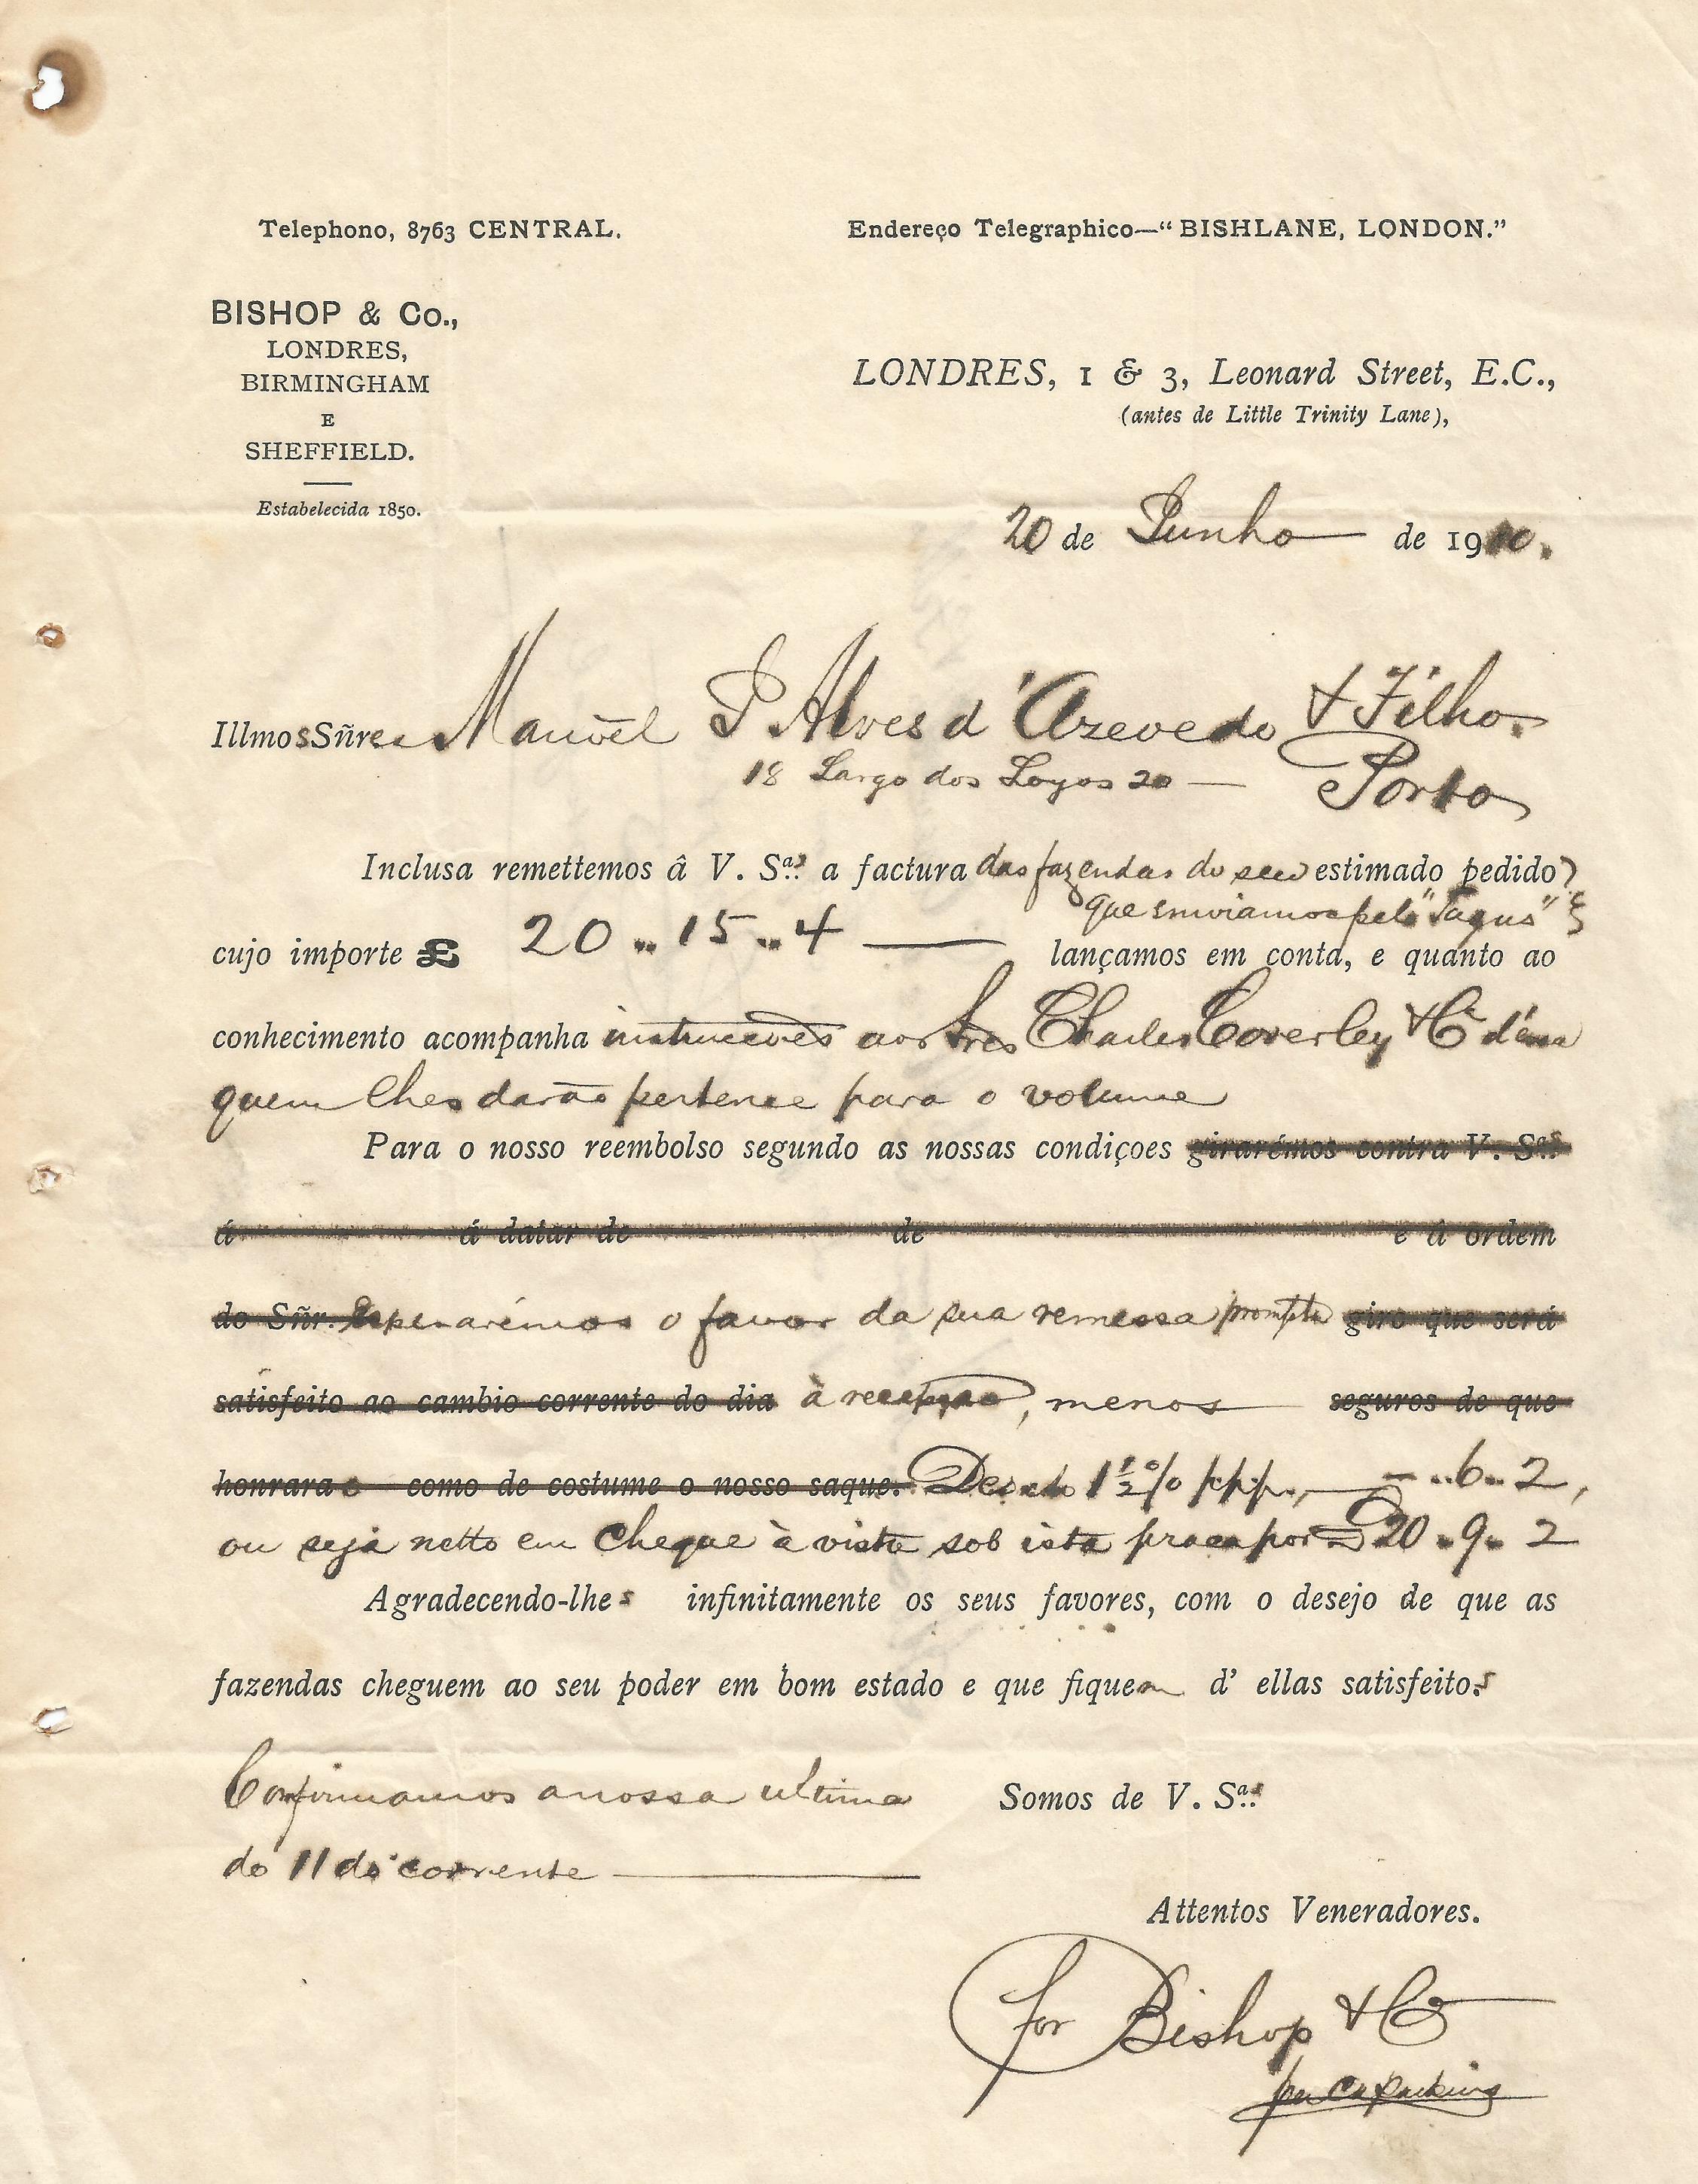 Telephono, 8763 CENTRAL.
Endereço Telegraphico—"BISHLANE, LONDON."
BISHOP & Co.,
LONDRES,
BIRMINGHAM
E
SHEFFIELD.
Estabelecida 1850.
LONDRES, 1 & 3, Leonard Street, E.C.,
(antes de Little Trinity Lane),
20 de Junho de 1910.
Illmos Sñres Manoel P Alves d'Azevedo & Filho.
18 Largo dos Loyos 20 — Porto
Inclusa remettemos â V. Sas. a factura das fazendas do seu estimado pedido
que enviamos pelo "Tagus"
cujo importe £ 20 .. 15 .. 4 — lançamos em conta, e quanto ao
conhecimento acompanha instrucções aos Sres Charles Coverley & Co d'essa
quem lhes darão pertence para o volume
Para o nosso reembolso segundo as nossas condiçoes girarémos contra V. Sas.
á á datar de de e á ordem
do Sñr. Esperarémos o favor da sua remessa prompta giro que será
satisfeito ao cambio corrente do dia à recepção, menos seguros de que
honrara como de costume o nosso saque. Descto 1½% p.p.p., — .. 6 .. 2,
ou seja netto em cheque à vista sob ista praça por £20 . 9 . 2
Agradecendo-lhes infinitamente os seus favores, com o desejo de que as
fazendas cheguem ao seu poder em bom estado e que fiquem d' ellas satisfeitos
Confirmamos a nossa ultima
de 11 do corrente —
Somos de V. Sas.
Attentos Veneradores.
for Bishop & Co
per